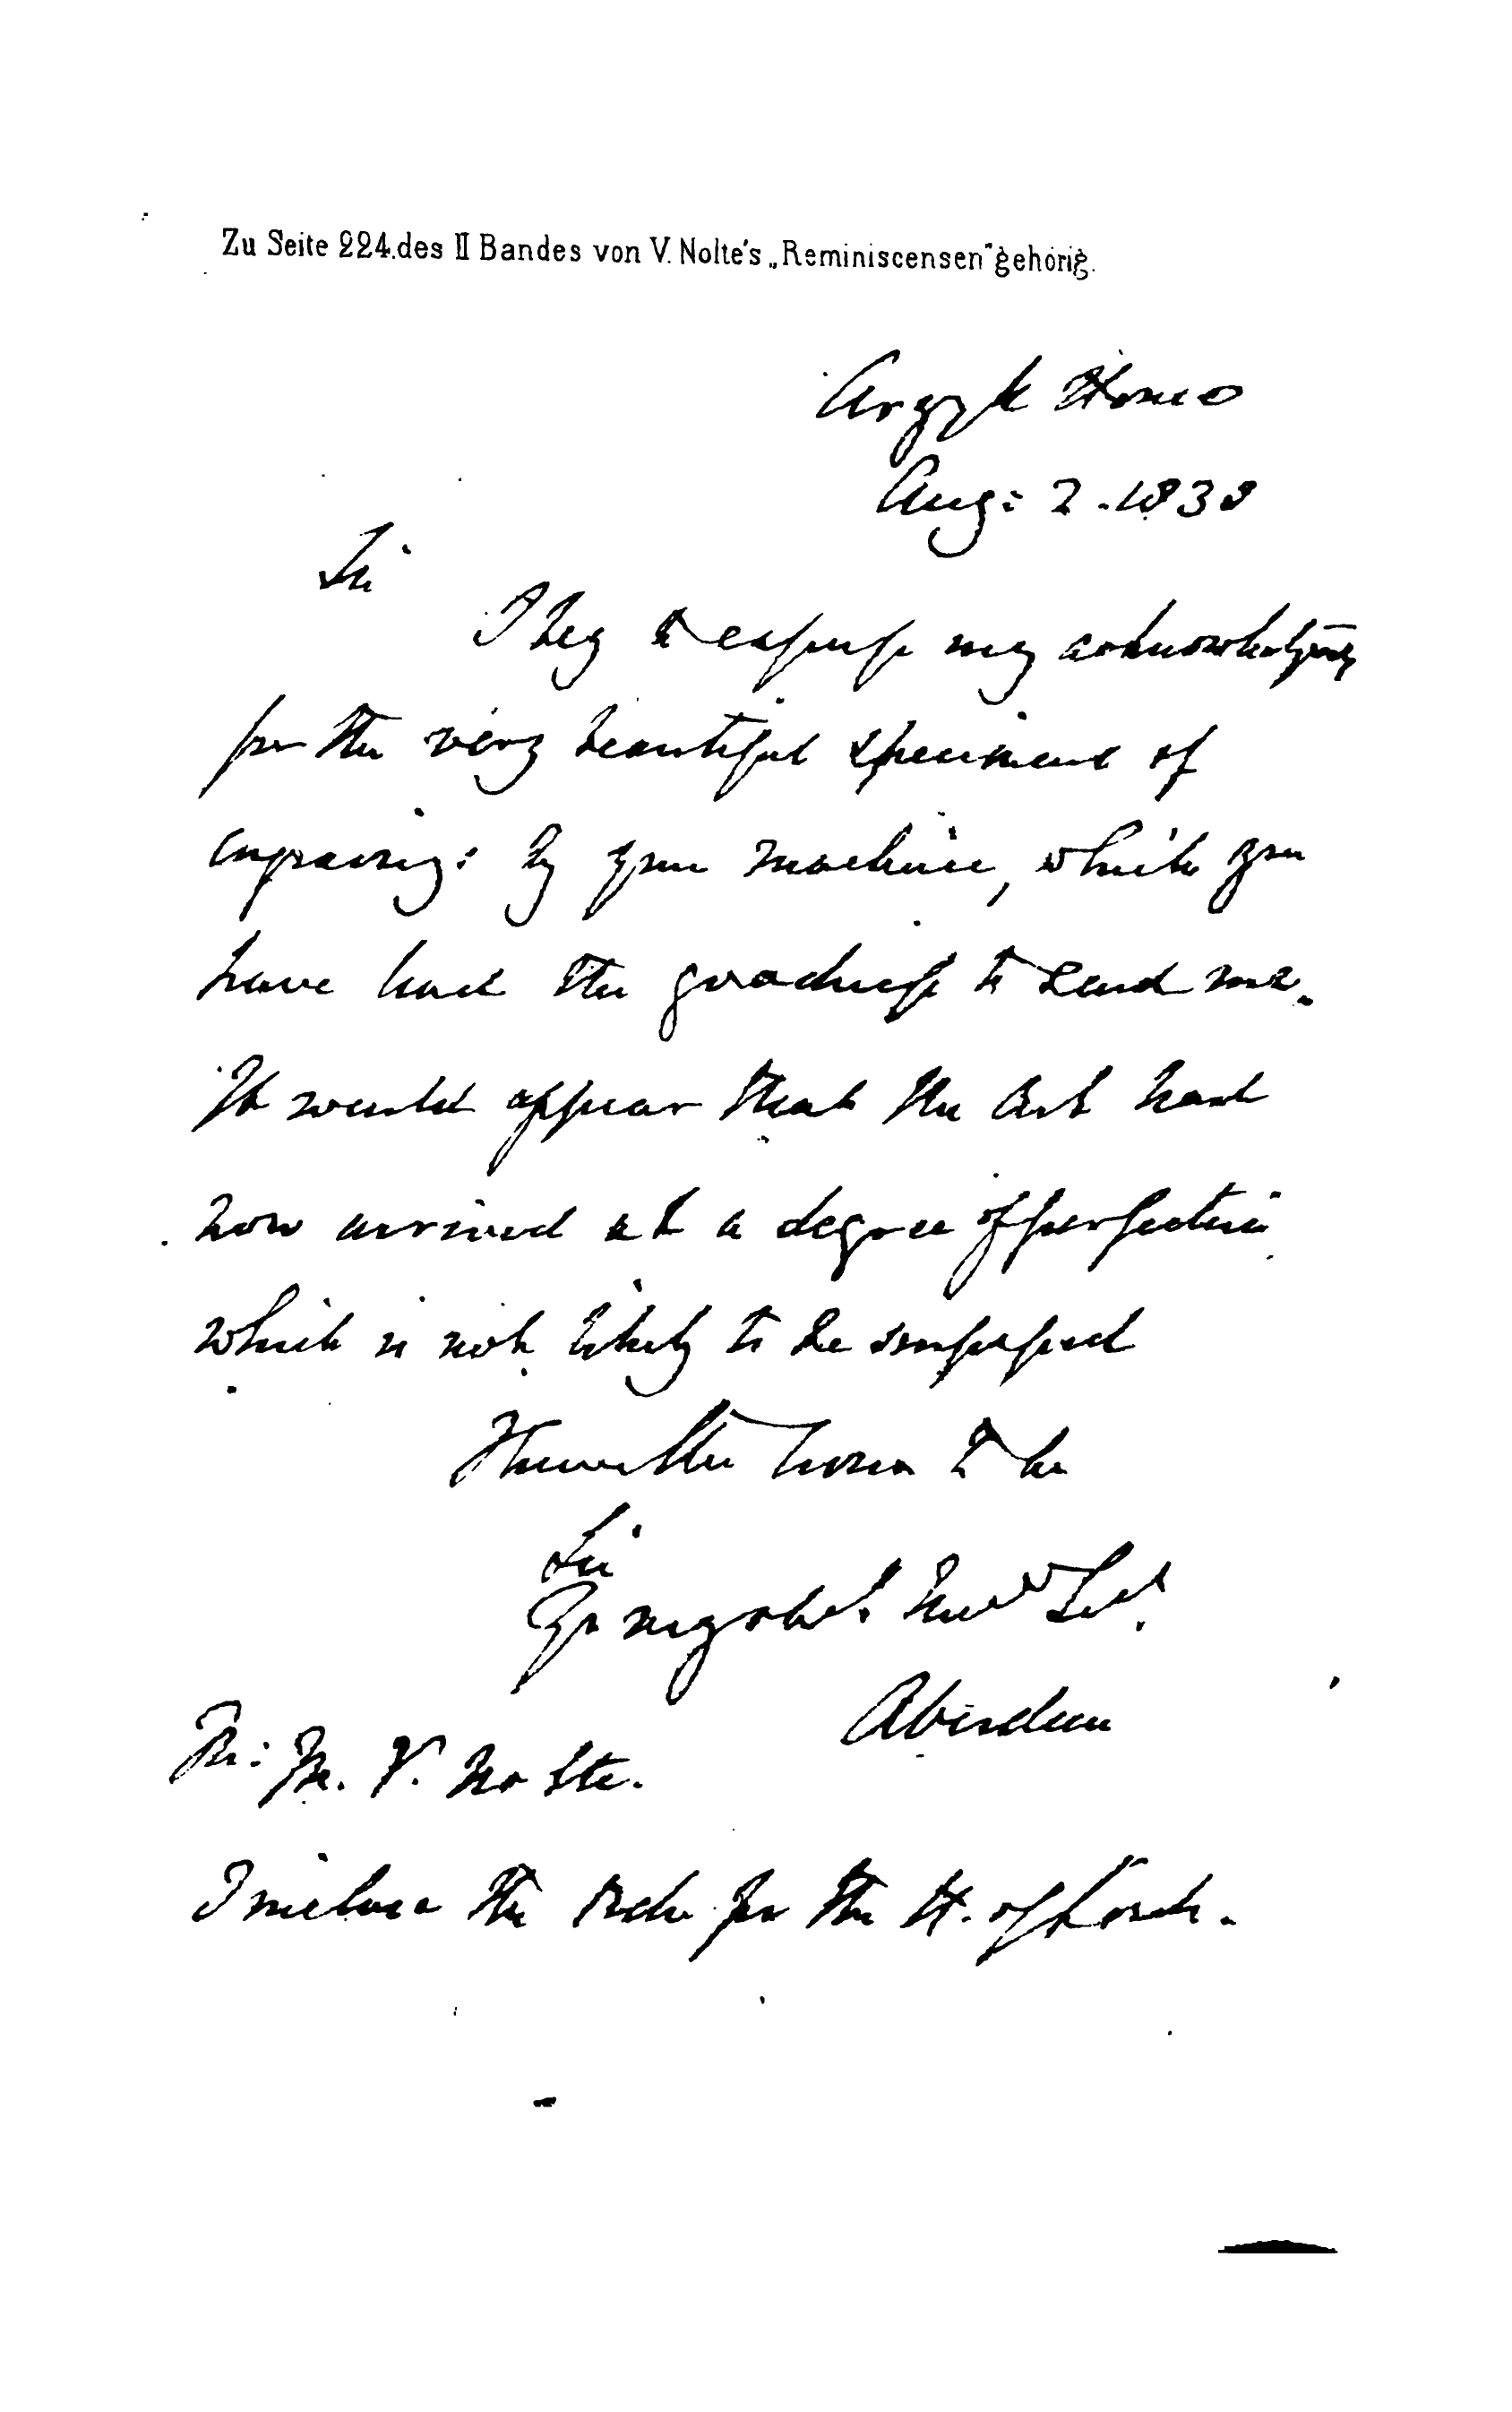 Zu Seite 224. des II Bandes von V. Nolte's „Reminiscensen" gehörig.
Argyle House
Aug: 2. 1838
Sir
I beg to express my acknowledgmts
for the very beautiful specimens of
engraving: by your machine, which you
have had the goodness to send me.
It would appear that the Art had
now arrived at a degree of perfection
which is not likely to be surpassed
I have the honor to be
Sir
Yr. my obt. hue Sert.
Aberdeen
M. V. Nolte.
I inclose the order for the H. of Lords.